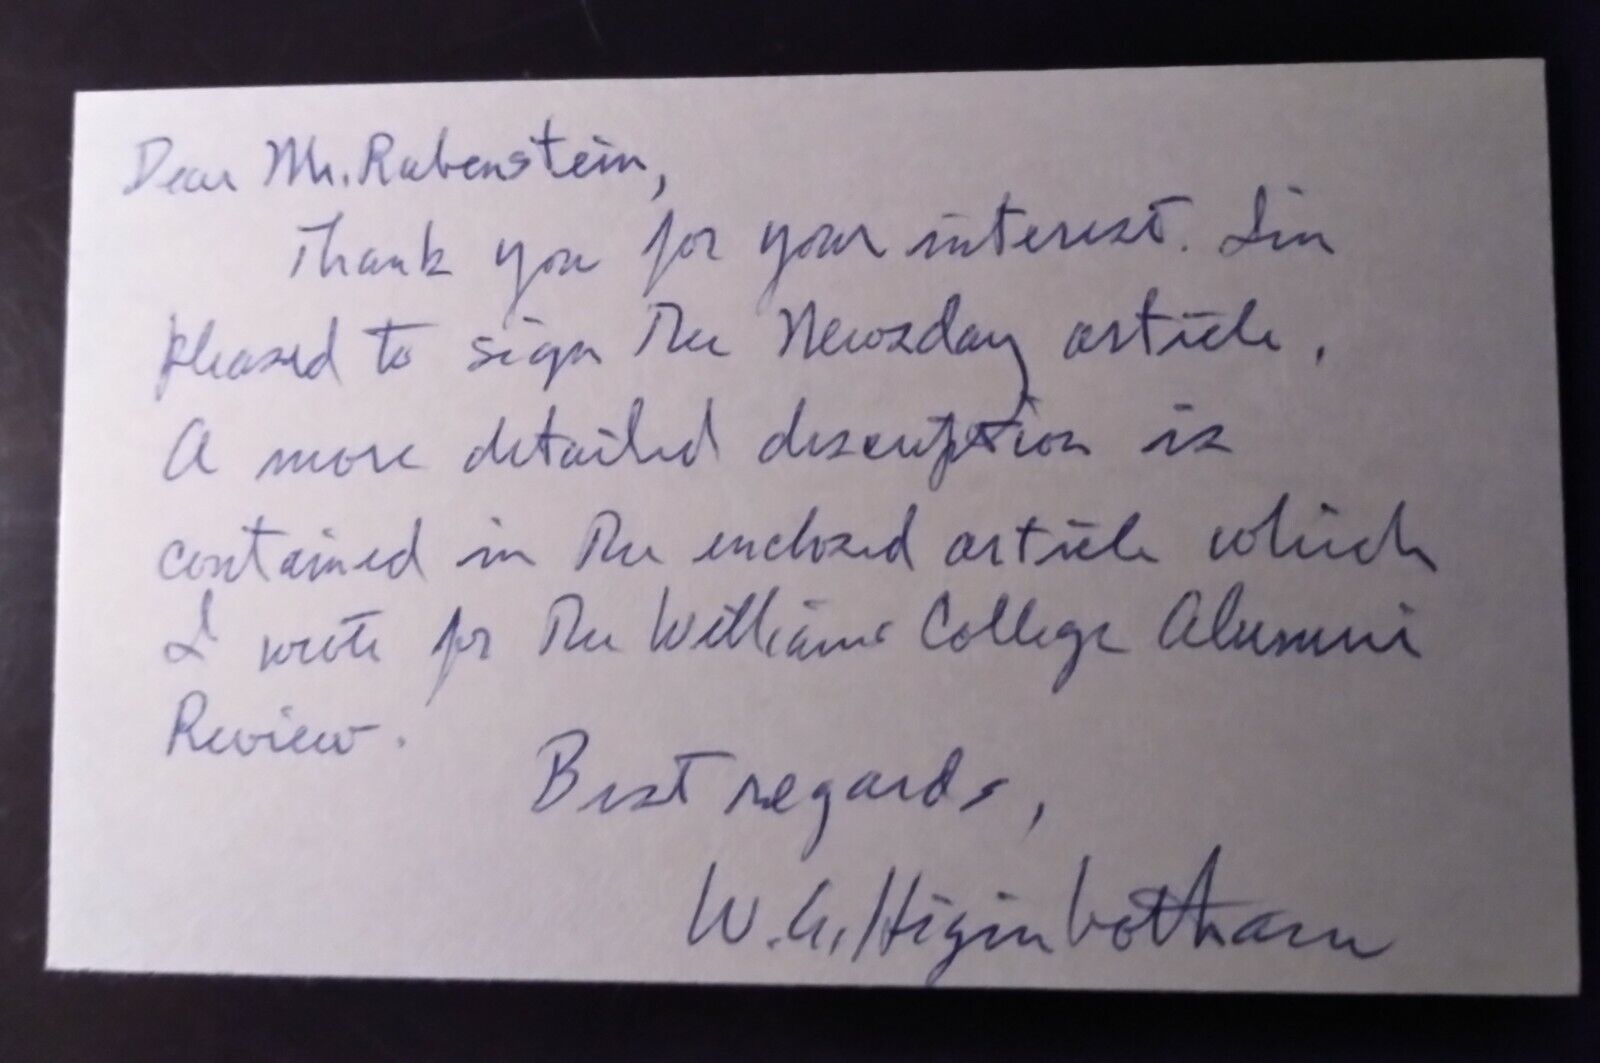 Dear Mr. Rubenstein,
Thank you for your interest. I'm
pleased to sign the Newsday article.
A more detailed description is
contained in the enclosed article which
I wrote for the Williams College Alumni
Review.
Best regards,
W.A. Higinbotham